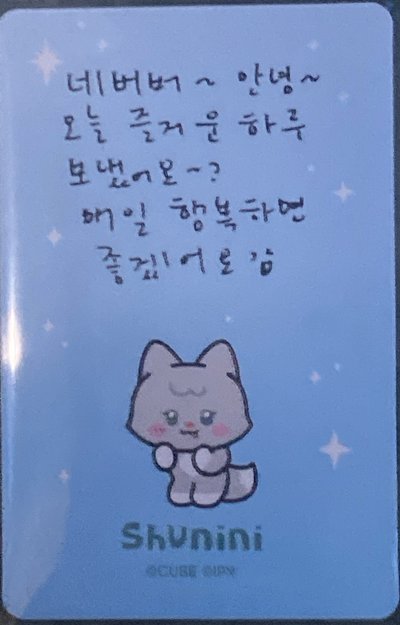 네버버~ 안녕~
오늘 즐거운 하루
보냈어요~?
매일 행복하면
좋겠어
Shunini
©CUBE ©IPX